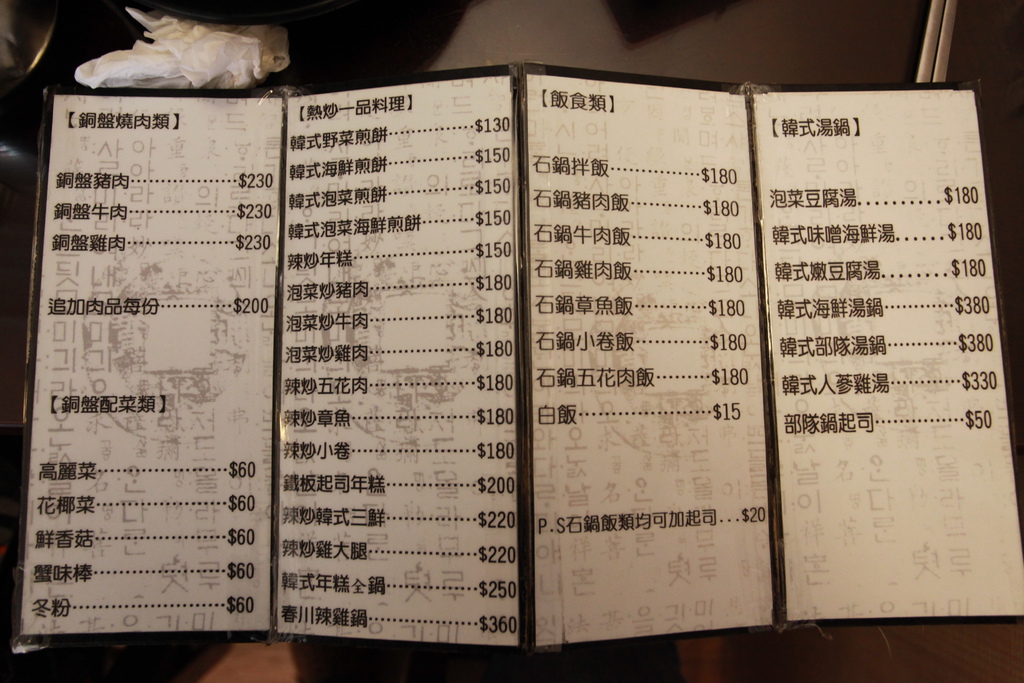 【銅盤燒肉類】
銅盤豬肉··················$230
銅盤牛肉··················$230
銅盤雞肉··················$230
追加肉品每份············$200
【銅盤配菜類】
高麗菜·····················$60
花椰菜·····················$60
鮮香菇·····················$60
蟹味棒·····················$60
冬粉························$60
【熱炒一品料理】
韓式野菜煎餅············$130
韓式海鮮煎餅············$150
韓式泡菜煎餅············$150
韓式泡菜海鮮煎餅······$150
辣炒年糕··················$150
泡菜炒豬肉···············$180
泡菜炒牛肉···············$180
泡菜炒雞肉···············$180
辣炒五花肉···············$180
辣炒章魚··················$180
辣炒小卷··················$180
鐵板起司年糕············$200
辣炒韓式三鮮············$220
辣炒雞大腿···············$220
韓式年糕全鍋············$250
春川辣雞鍋···············$360
【飯食類】
石鍋拌飯··················$180
石鍋豬肉飯···············$180
石鍋牛肉飯···············$180
石鍋雞肉飯···············$180
石鍋章魚飯···············$180
石鍋小卷飯···············$180
石鍋五花肉飯············$180
白飯························$15
P.S石鍋飯類均可加起司...$20
【韓式湯鍋】
泡菜豆腐湯..........$180
韓式味噌海鮮湯......$180
韓式嫩豆腐湯........$180
韓式海鮮湯鍋············$380
韓式部隊湯鍋············$380
韓式人蔘雞湯············$330
部隊鍋起司···············$50